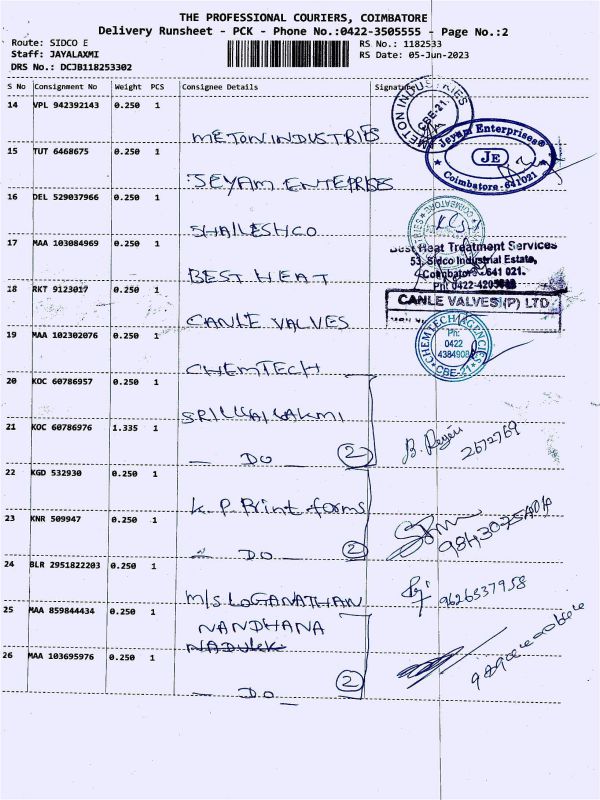 THE PROFESSIONAL COURIERS, COIMBATORE
Delivery Runsheet - PCK - Phone No.:0422-3505555 - Page No.:2
Route: SIDCO E
RS No.: 1182533
Staff: JAYALAXMI
RS Date: 05-Jun-2023
DRS No.: DCJB118253302
S No Consignment No Weight PCS Consignee Details Signature
14 VPL 942392143 0.250 1
METON INDUSTRIES
METON INDUSTRIES
CBE-21.
15 TUT 6468675 0.250 1
JEYAM ENTEPRISES
Jeyam Enterprises
JE
Coimbatore-641021
16 DEL 529037966 0.250 1
SHAILESHCO
17 MAA 103084969 0.250 1
BEST HEAT
Best Heat Treatment Services
53, Sidco Industrial Estate,
Coimbatore-641 021.
18 RKT 9123017 0.250 1
CANLE VALVES
CANLE VALVES (P) LTD
19 MAA 102302076 0.250 1
CHEMTECH
CHEMTECH AGENCIES
Ph:
0422
CBE-21
20 KOC 60786957 0.250 1
21 KOC 60786976 1.335 1
DO 2
2672769
22 KGD 532930 0.250 1
K. P. Print forms
23 KNR 509947 0.250 1
DO 2
24 BLR 2951822203 0.250 1
M/S. LOGANATHAN
9626537958
25 MAA 859844434 0.250 1
NANDHANA
26 MAA 103695976 0.250 1
DO 2